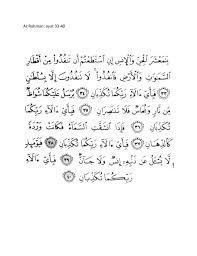 Ar Rahman: ayat 33-40
يَٰمَعْشَرَ ٱلْجِنِّ وَٱلْإِنسِ إِنِ ٱسْتَطَعْتُمْ أَن تَنفُذُوا۟ مِنْ أَقْطَارِ
ٱلسَّمَٰوَٰتِ وَٱلْأَرْضِ فَٱنفُذُوا۟ لَا تَنفُذُونَ إِلَّا بِسُلْطَٰنٍ
٣٣ فَبِأَىِّ ءَالَآءِ رَبِّكُمَا تُكَذِّبَانِ ٣٤ يُرْسَلُ عَلَيْكُمَا شُوَاظٌ
مِّن نَّارٍ وَنُحَاسٌ فَلَا تَنتَصِرَانِ ٣٥ فَبِأَىِّ ءَالَآءِ رَبِّكُمَا
تُكَذِّبَانِ ٣٦ فَإِذَا ٱنشَقَّتِ ٱلسَّمَآءُ فَكَانَتْ وَرْدَةً
كَٱلدِّهَانِ ٣٧ فَبِأَىِّ ءَالَآءِ رَبِّكُمَا تُكَذِّبَانِ ٣٨ فَيَوْمَئِذٍ
لَّا يُسْـَٔلُ عَن ذَنۢبِهِۦٓ إِنسٌ وَلَا جَآنٌّ ٣٩ فَبِأَىِّ ءَالَآءِ
رَبِّكُمَا تُكَذِّبَانِ ٤٠